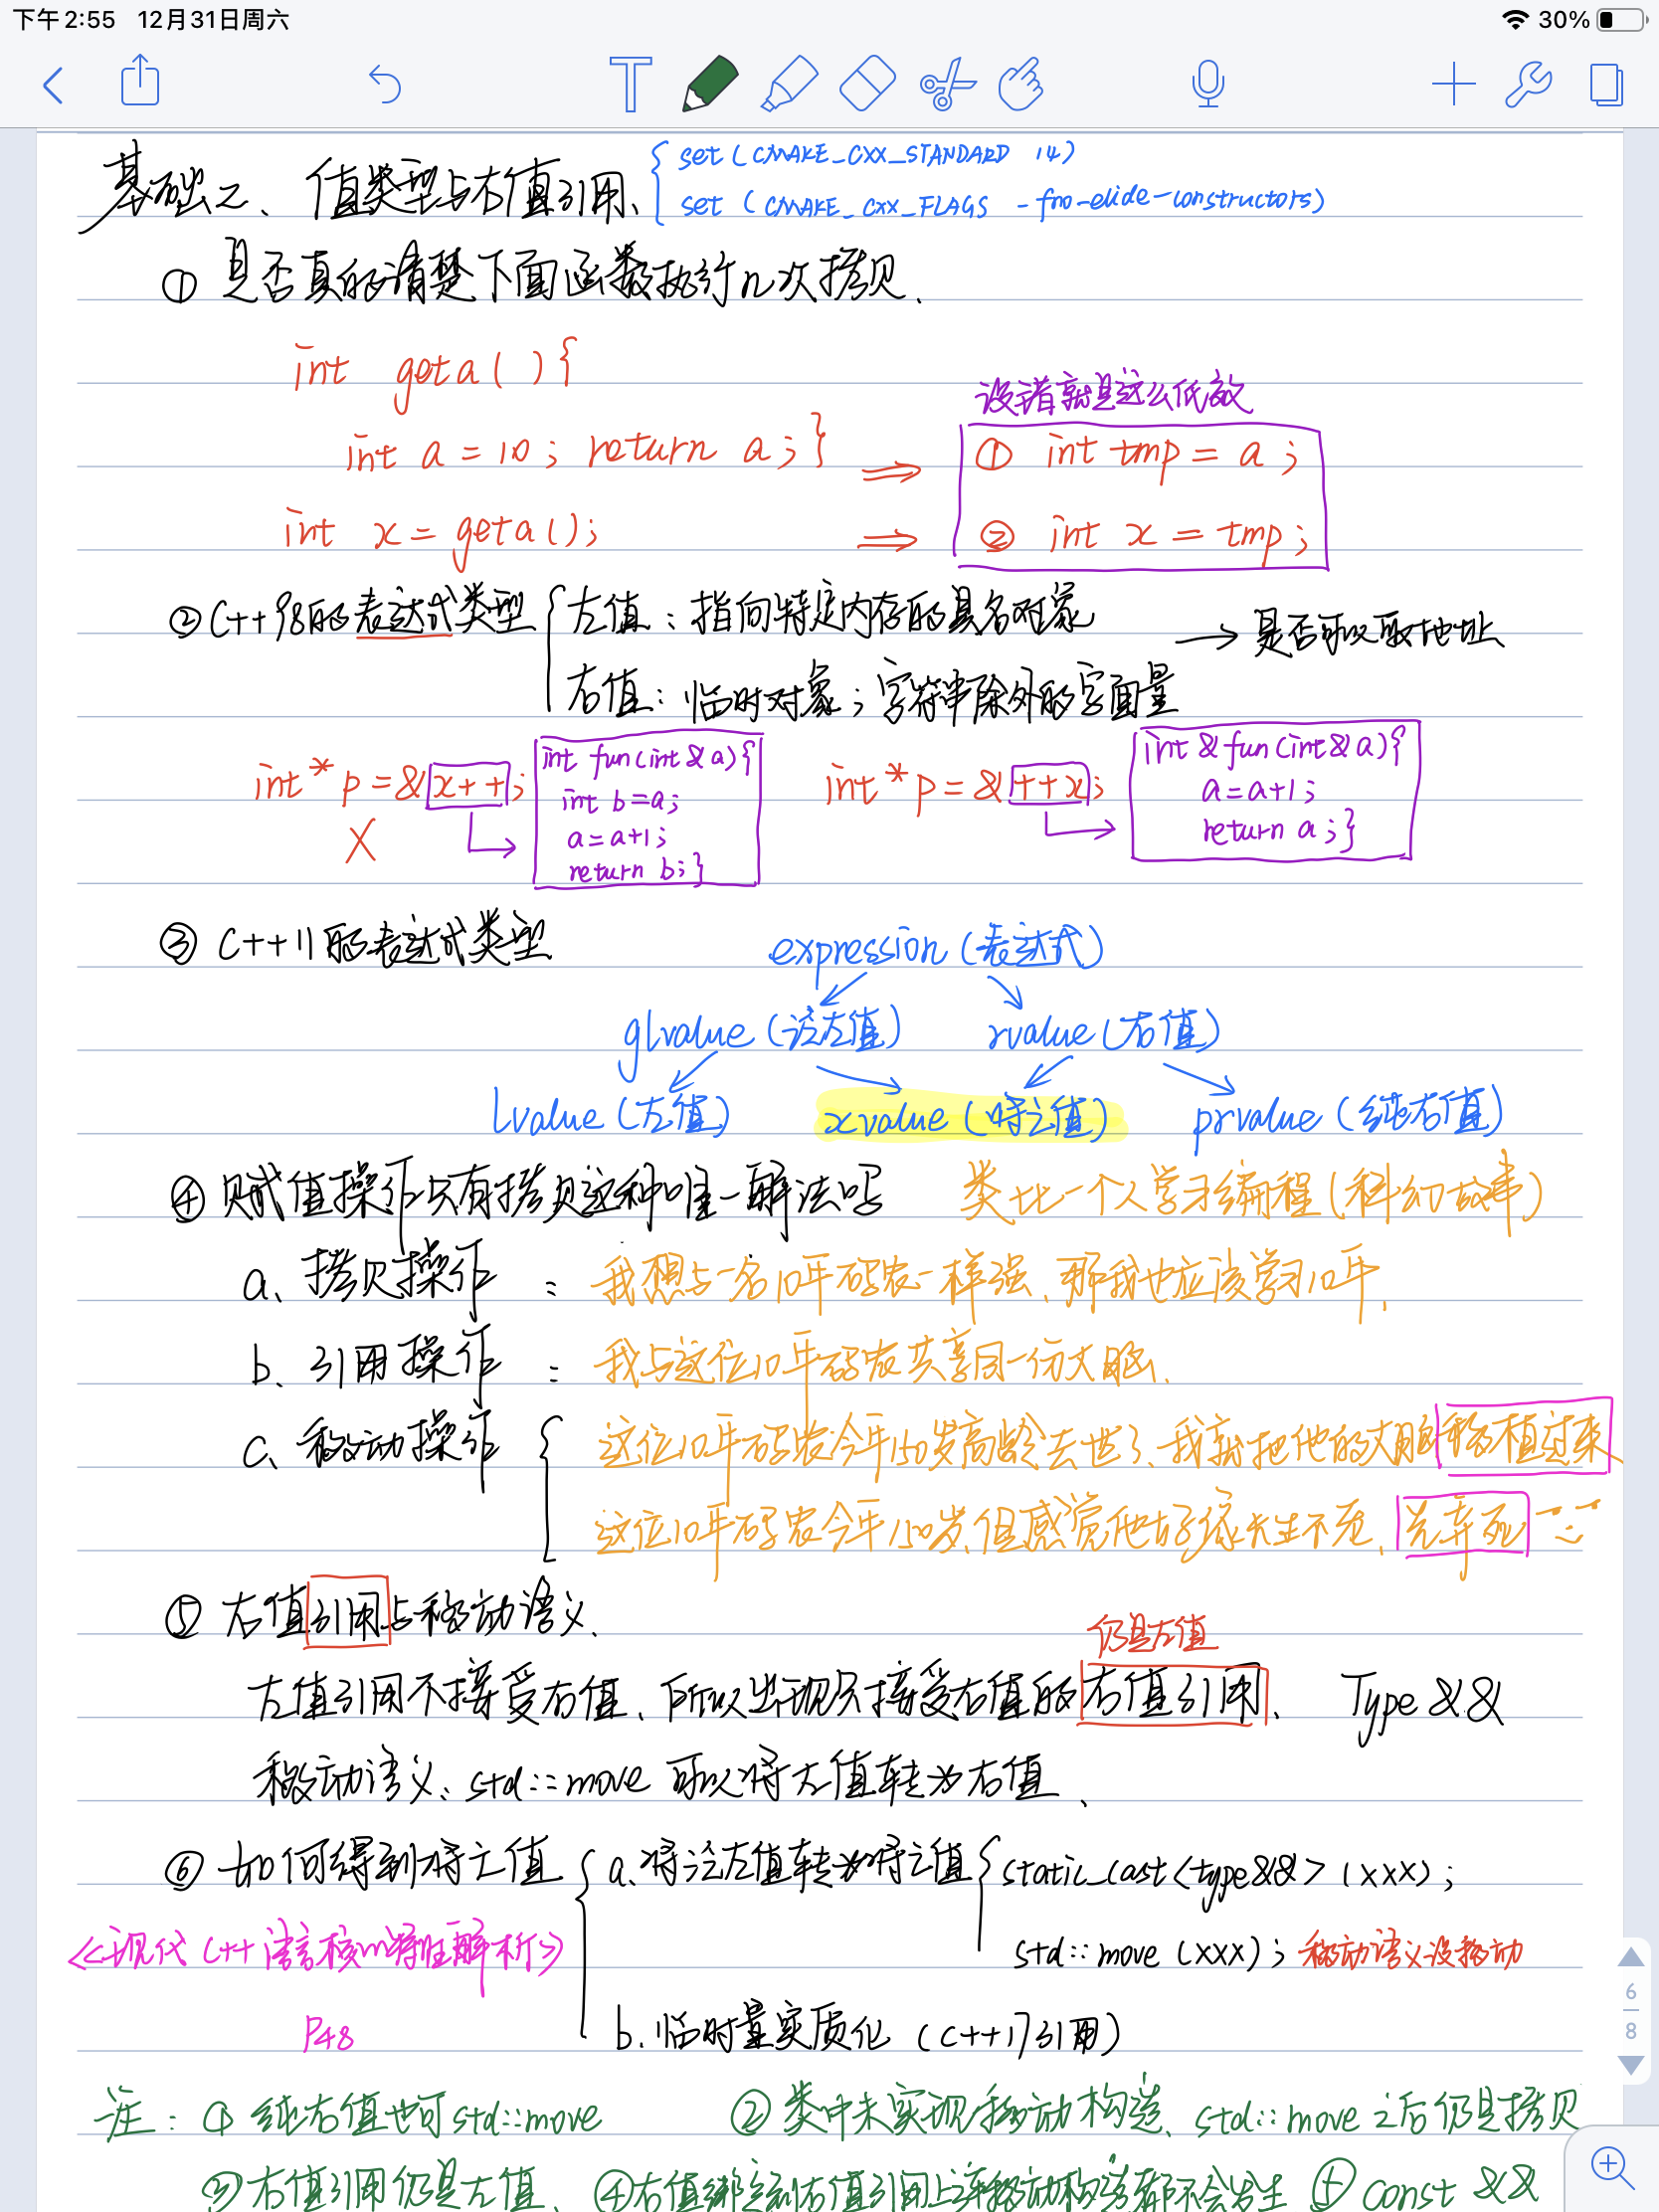 下午2:55 12月31日周六
30%
基础二、值类型与右值引用、
set(CMAKE_CXX_STANDARD 14)
set (CMAKE_CXX_FLAGS -fno-elide-constructors)
① 是否真的清楚下面函数执行几次拷贝.
int geta( ){
int a = 10; return a; }
int x = geta();
没错就是这么低效
① int tmp = a;
② int x = tmp;
② C++98的表达式类型
左值:指向特定内存的具名对象
右值:临时对象;字符串除外的字面量
→ 是否可以取地址
int* p = &x++;
X
int fun(int & a){
int b = a;
a = a+1;
return b; }
int* p = &++x;
int & fun(int& a){
a = a+1;
return a; }
③ C++11的表达式类型
expression (表达式)
glvalue (泛左值) rvalue (右值)
lvalue (左值) xvalue (将亡值) prvalue (纯右值)
④ 赋值操作只有拷贝这种唯一解法吗 类比一个人学习编程(科幻故事)
a、拷贝操作 : 我想与一名10年码农一样强、那我也应该学习10年.
b、引用操作 : 我与这位10年码农共享同一份大脑.
c、移动操作
这位10年码农今年150岁高龄去世了、我就把他的大脑移植过来
这位10年码农今年150岁、但感觉他好像长生不死、
⑤ 右值引用与移动语义.
仍是左值
左值引用不接受右值、所以出现只接受右值的右值引用. Type &&
移动语义、std::move 可以将左值转为右值.
⑥ 如何得到将亡值
a.将泛左值转为将亡值
static_cast<type&&> (xxx);
std::move (xxx); 移动语义没移动
<<现代C++语言核心特性解析>>
P48
b.临时量实质化 (C++17引用)
注: ① 纯右值也可std::move ② 类中未实现移动构造、std::move之后仍是拷贝
③右值引用仍是左值、 ④右值绑定到右值引用上连移动构造都不会发生 ⑤ const &&
6
8